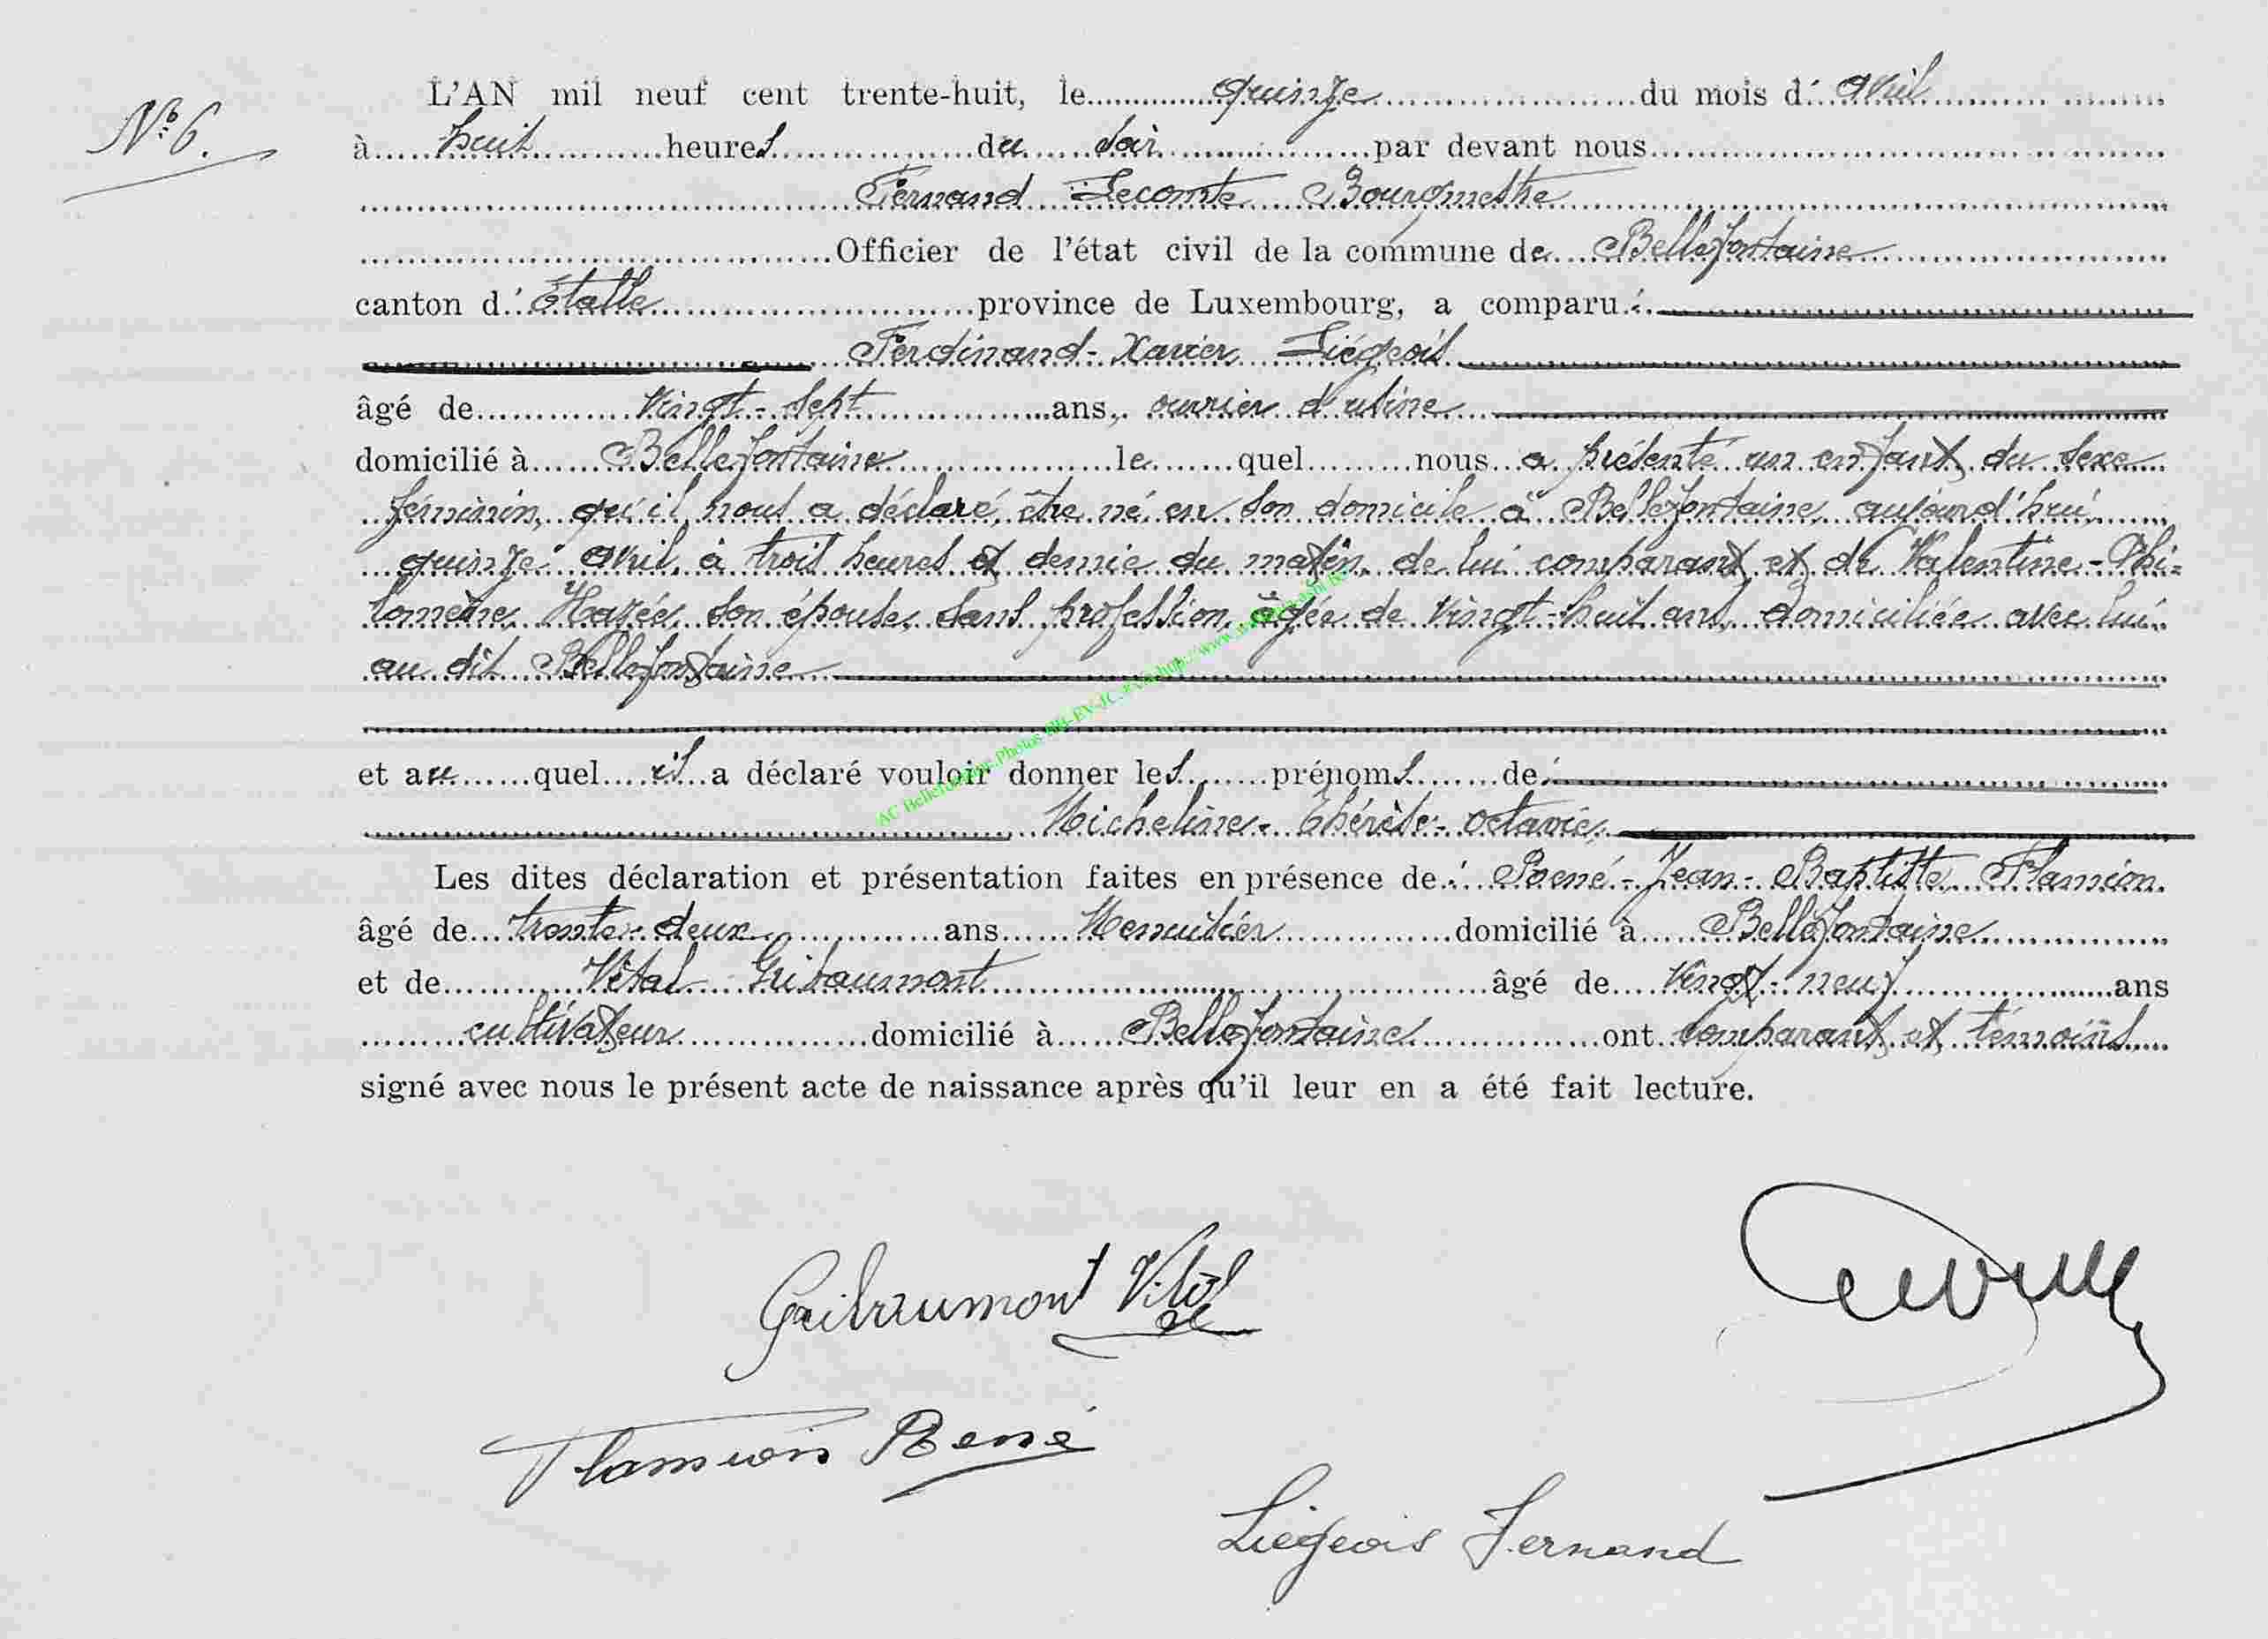 N° 6.
L'AN mil neuf cent trente-huit, le quinze du mois d' avril
à huit heures du soir par devant nous
Fernand Lecomte Bourgmestre
Officier de l'état civil de la commune de Bellefontaine
canton d' Etalle province de Luxembourg, a comparu :
Ferdinand-Xavier Liégeois
âgé de vingt-sept ans, ouvrier d'usine
domicilié à Bellefontaine lequel nous a présenté un enfant du sexe
féminin, qu'il nous a déclaré être né en son domicile à Bellefontaine aujourd'hui
quinze avril, à trois heures et demie du matin, de lui comparant et de Valentine-Phi-
lomène Hazée, son épouse, sans profession, âgée de vingt-huit ans, domiciliée avec lui
au dit Bellefontaine
et auquel il a déclaré vouloir donner les prénoms de :
Micheline-Thérèse-Octavie.
Les dites déclaration et présentation faites en présence de : René-Jean-Baptiste Flamion
âgé de trente-deux ans Menuisier domicilié à Bellefontaine
et de Vital Gribaumont âgé de vingt-neuf ans
cultivateur domicilié à Bellefontaine ont comparant et témoins
signé avec nous le présent acte de naissance après qu'il leur en a été fait lecture.
Gribaumont Vital
Flamion René
Liégeois Fernand